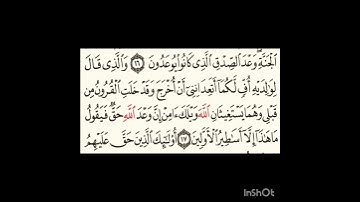 الْجَنَّةِ ۖ وَعْدَ الصِّدْقِ الَّذِي كَانُوا يُوعَدُونَ ١٦ وَالَّذِي قَالَ
لِوَٰلِدَيْهِ أُفٍّ لَّكُمَا أَتَعِدَانِنِي أَنْ أُخْرَجَ وَقَدْ خَلَتِ الْقُرُونُ مِن
قَبْلِي وَهُمَا يَسْتَغِيثَانِ اللَّهَ وَيْلَكَ ءَامِنْ إِنَّ وَعْدَ اللَّهِ حَقٌّ فَيَقُولُ
مَا هَٰذَا إِلَّا أَسَٰطِيرُ الْأَوَّلِينَ ١٧ أُولَٰئِكَ الَّذِينَ حَقَّ عَلَيْهِمُ
InShOt